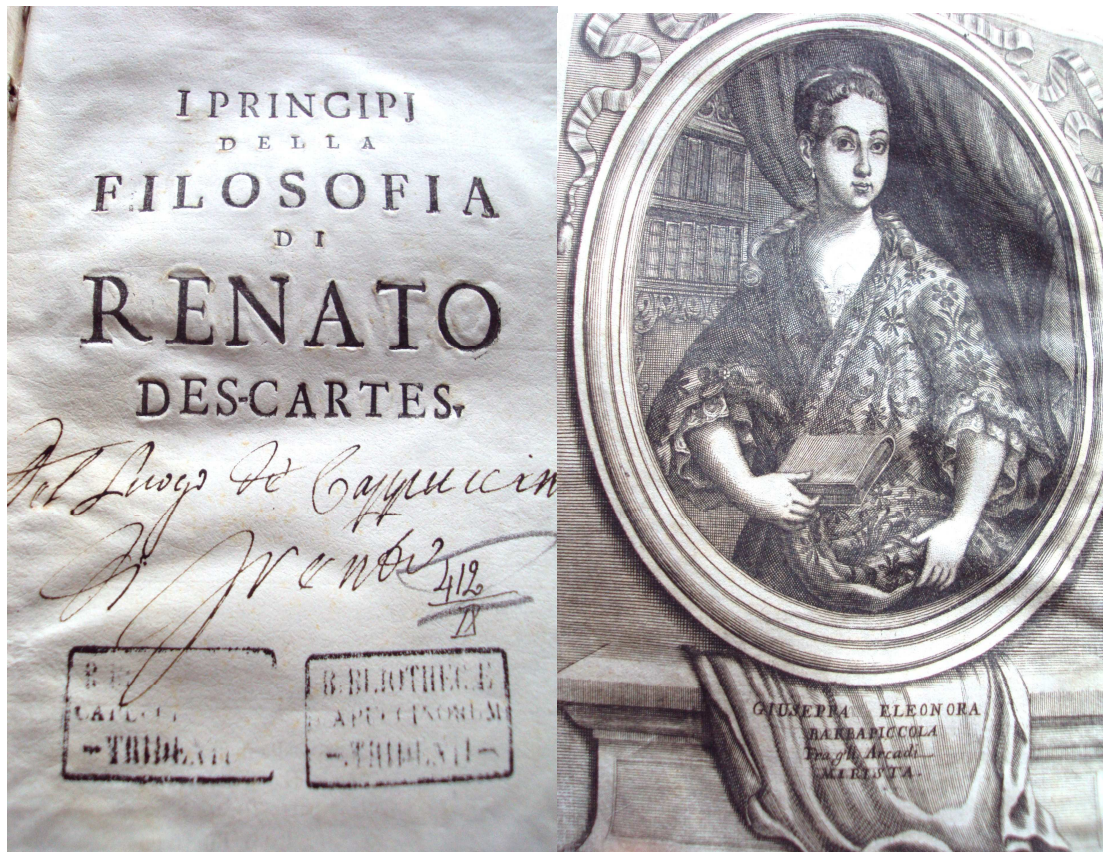 I PRINCIPJ
DELLA
FILOSOFIA
DI
RENATO
DES-CARTES.
Del Luogo de Cappuccin
di Trento
412
BIBLIOTHECÆ
CAPUCCINORUM
TRIDENTI
CAPUCCI
TRIDENTI
GIUSEPPA ELEONORA
BARBAPICCOLA
Fra gli Arcadi
MIRISTA.